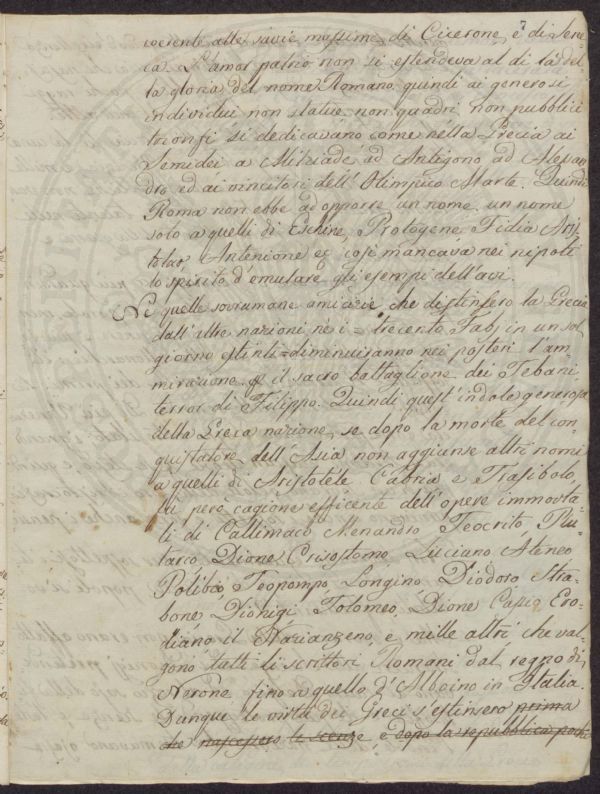 7
coerente alle savie massime di Cicerone, e di Sene-
ca. L'amor patrio non si estendeva al di là del-
la gloria del nome Romano quindi ai generosi
individui non statue non quadri non pubblici
trionfi si dedicavano come nella Grecia ai
Semidei a Milziade ad Antigono ad Alessan
dro ed ai vincitori dell'Olimpico Marte. Quindi
Roma non ebbe ad opporre un nome, un nome
solo a quelli di Eschine, Protogene Fidia Aris
tolao Antenione e così mancava nei nipoti
lo spirito d'emulare gli esempi dell'avi.
Nè quelle sovrumane amicizie che distinsero la Grecia
dall'altre nazioni ne i = trecento Fabj in un sol
giorno estinti = diminuiranno nei posteri l'am-
mirazione il sacro battaglione dei Tebani
terror di Filippo. Quindi quest'indole generosa
della Greca nazione, se dopo la morte del con-
quistatore dell'Asia non aggiunse altri nomi
a quelli di Aristotele Cabria e Trasibolo,
fu però cagione efficente dell'opere immorta-
li di Callimaco Menandro Teocrito, Plu-
tarco, Dione Crisostomo, Luciano Ateneo
Polibio Teopompo, Longino Diodoro Stra-
bone Dionigi Tolomeo, Dione Cassio, Ero-
diano il Nazianzeno, e mille altri che val-
gono tutti li scrittori Romani dal regno di
Nerone fino a quello d'Alboino in Italia.
Dunque le virtù dei Greci s'estinsero prima
che nascessero le scenze e dopo la repubblica poche